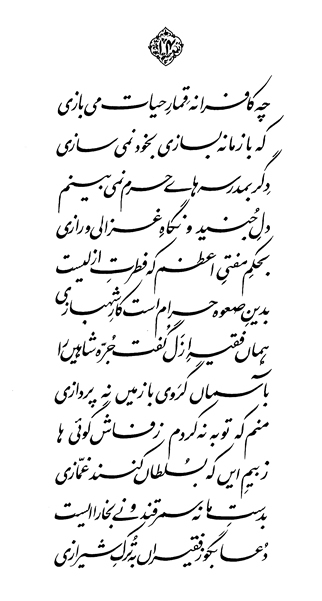 ۱۴
چہ کافرانہ قمارِ حیات می بازی
کہ با زمانہ بسازی بخود نمی سازی
دگر بمدرسہ ہاے حرم نمی بینم
دلِ جُنید و نگاہِ غزالی و رازی
بحکمِ مفتیِ اعظم کہ فطرتِ ازلیست
بدینِ صعوہ حرام است کارِ شہبازی
ہماں فقیہِ ازَل گفت جُرّہ شاہیں را
بآسماں گرَوی با زمیں نہ پردازی
منم کہ توبہ نہ کردم ز فاش گوئی ہا
ز بیمِ ایں کہ بسُلطاں کنند غمّازی
بدستِ ما نہ سمرقند و نے بخارا ایست
دُعا بگو ز فقیراں بہ تُرکِ شیرازی